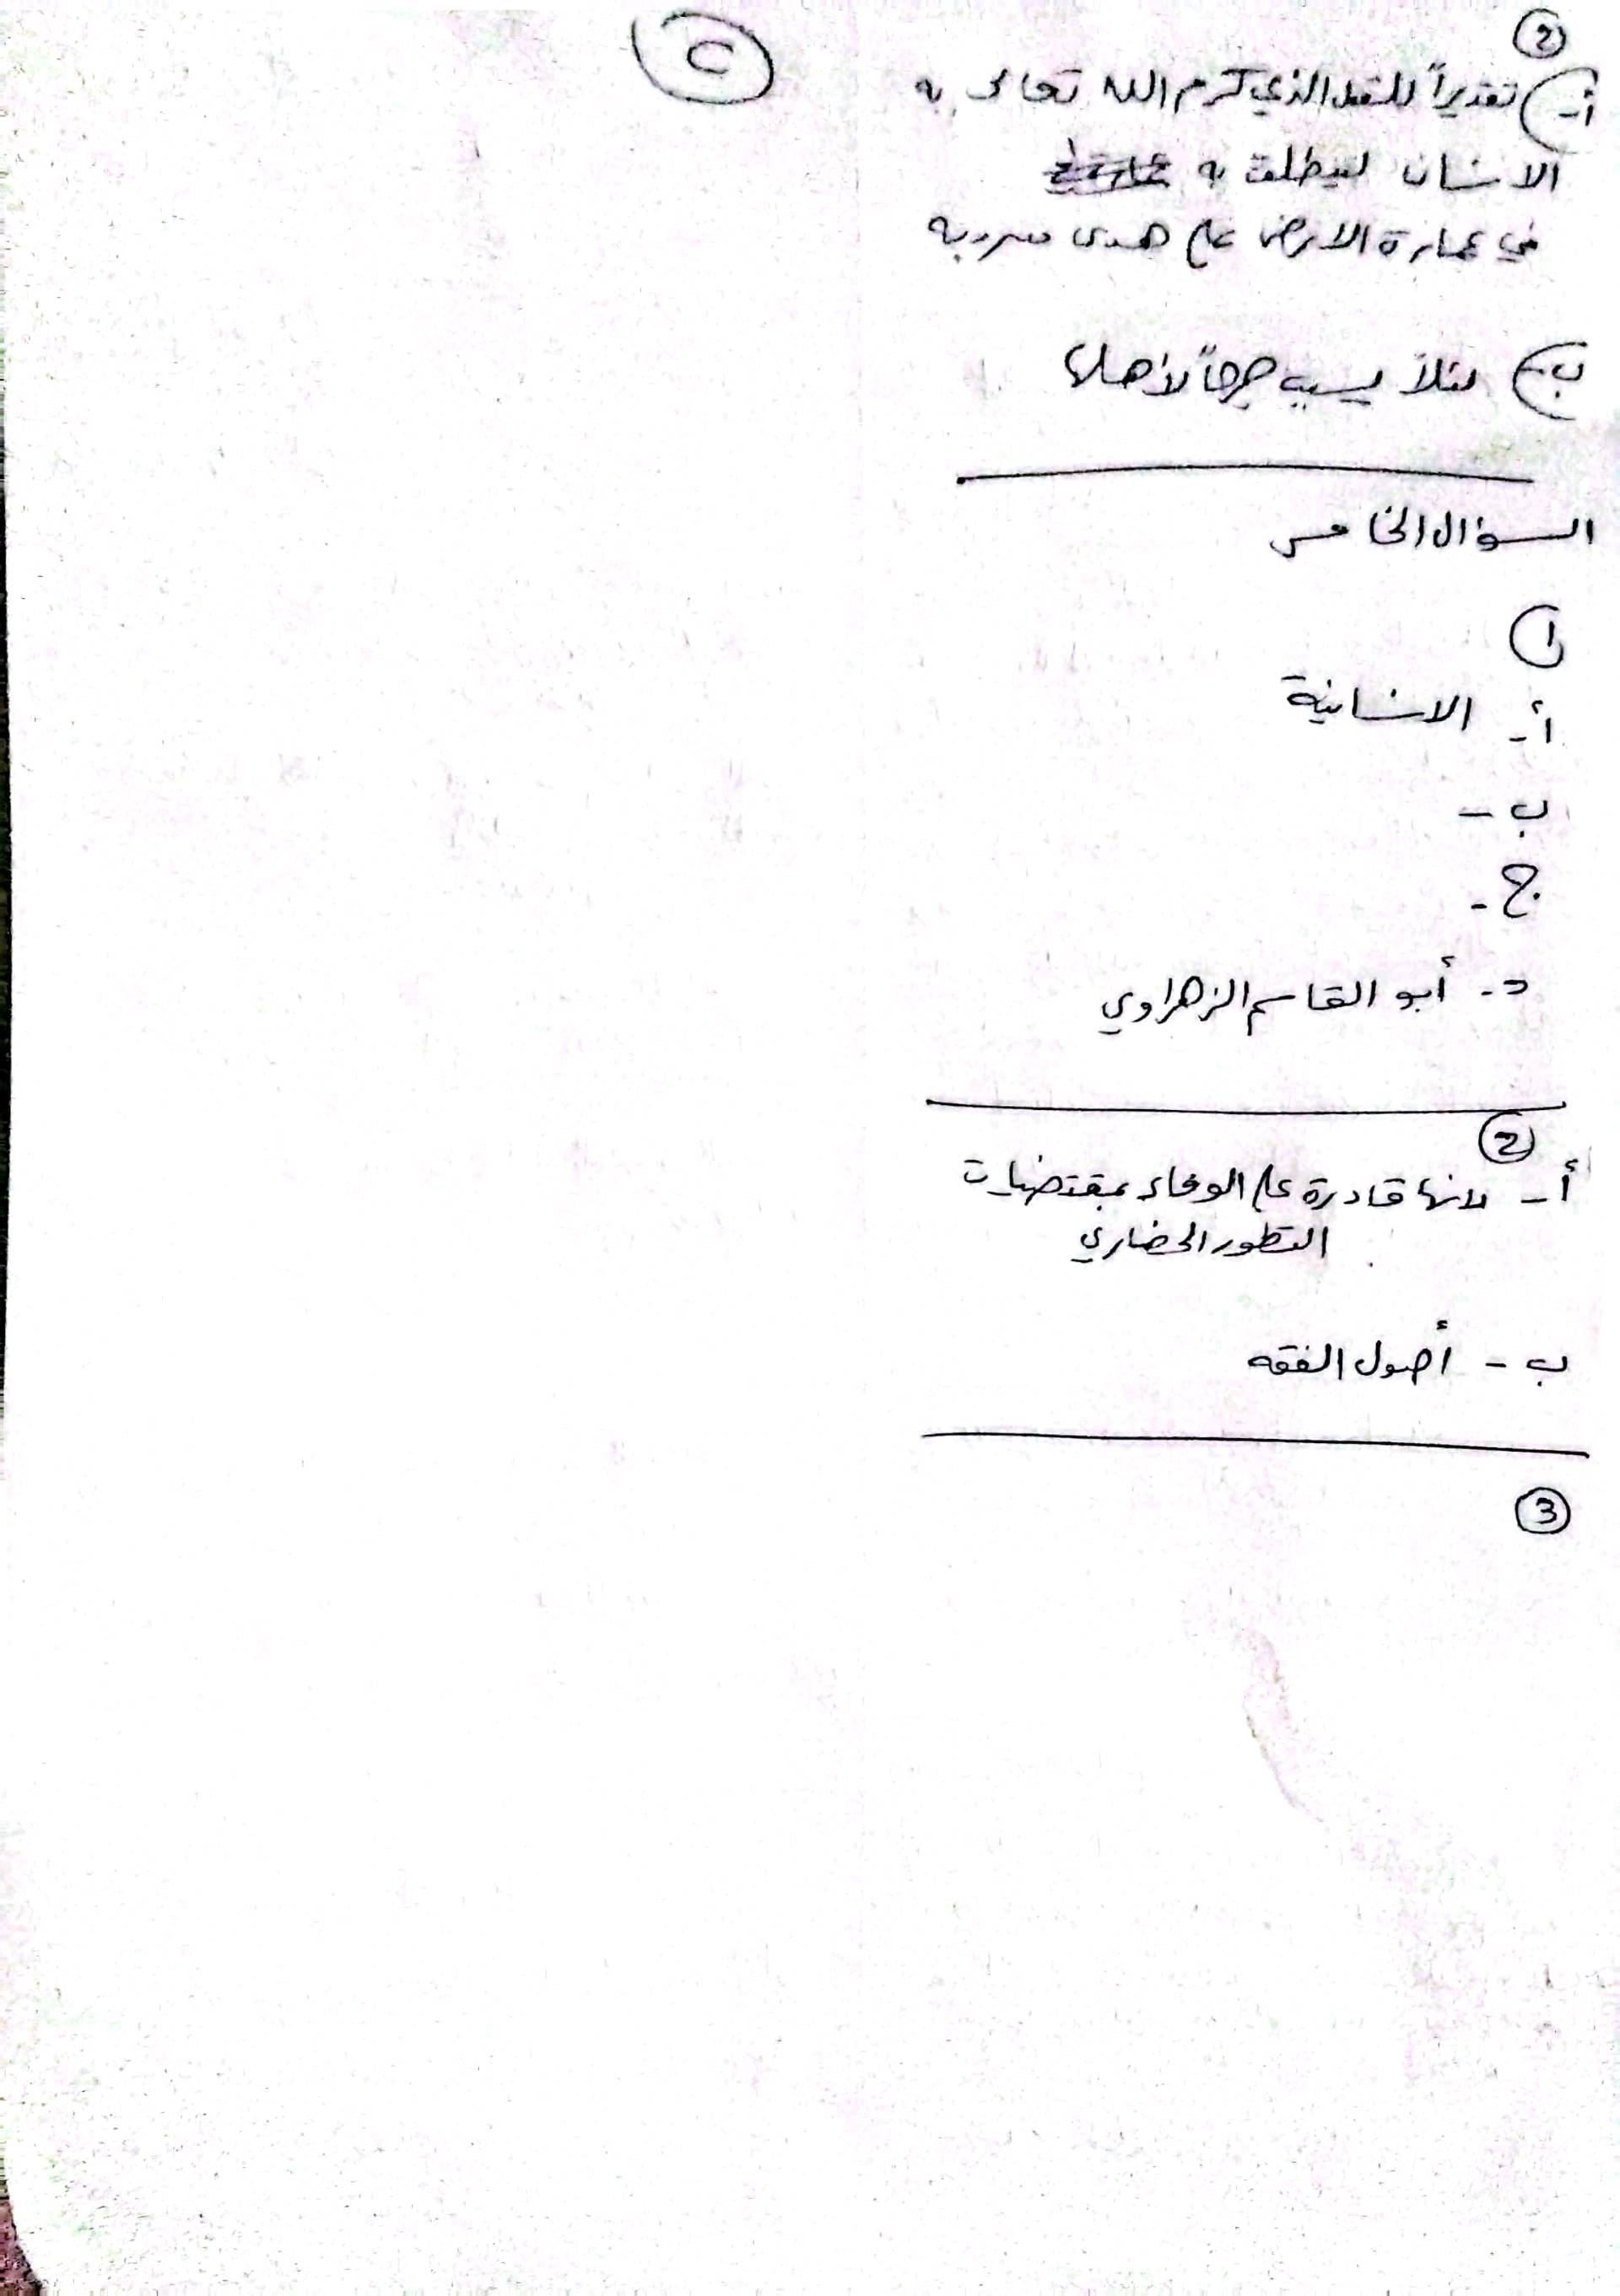 ②
أ- تقديراً للعقل الذي كرم الله تعالى به
الانسان لينطلق به
في عمارة الارض على هدى من ربه
ب- لئلا يسبب حرجاً لأهلها
السؤال الخامس
①
أ- الانسانية
ب -
ج -
د - أبو القاسم الزهراوي
②
أ- لانها قادرة على الوفاء بمقتضيات
التطور الحضاري
ب - أصول الفقه
③